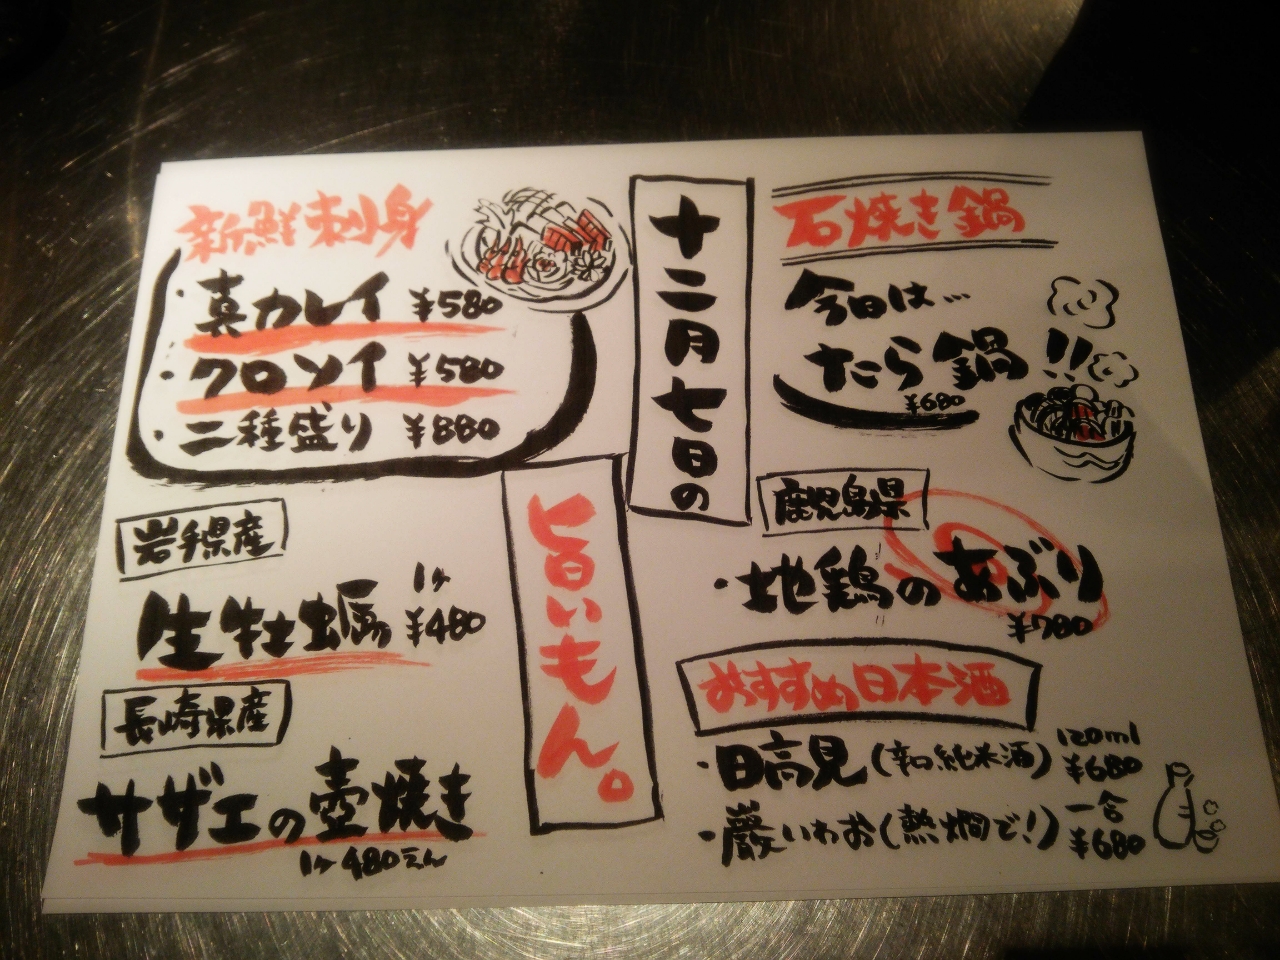 十二月七日の
旨いもん。
新鮮刺身
・真カレイ ¥580
・クロソイ ¥580
・二種盛り ¥880
岩手県産
生牡蠣 1ヶ ¥480
長崎県産
サザエの壺焼き
1ヶ 480えん
石焼き鍋
今日は…
たら鍋!!
¥680
鹿児島県
・地鶏のあぶり
¥780
おすすめ日本酒
・日高見(辛口純米酒) 120ml ¥680
・巌いわお(熱燗で!) 一合 ¥680